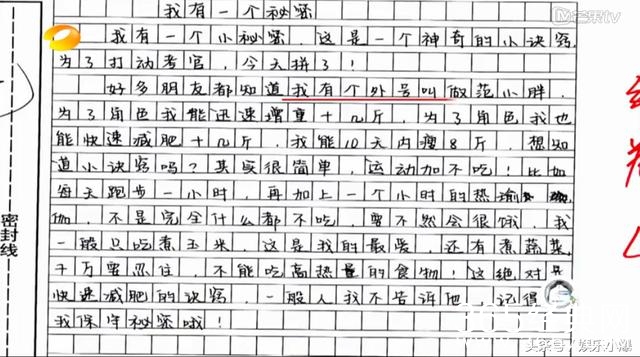 芒果tv
我有一个秘密
我有一个小秘密,这是一个神奇的小诀窍,
为了打动考官,今天拼了!
好多朋友都知道我有个外号叫做范小胖,
为了角色我能迅速增重十几斤,为了角色我也
能快速减肥十几斤,我能10天内瘦8斤,想知
道小诀窍吗?其实很简单,运动加不吃!比如
每天跑步一小时,再加上一个小时的热瑜
伽,不是完全什么都不吃,要不然会很饿,我
一般只吃煮玉米,这是我的最爱,还有煮蔬菜,
千万要忍住,不能吃高热量的食物!这绝对
快速减肥的诀窍,一般人我不告诉他,记得
我保守秘密哦!
密封线
头条号/娱乐小爆